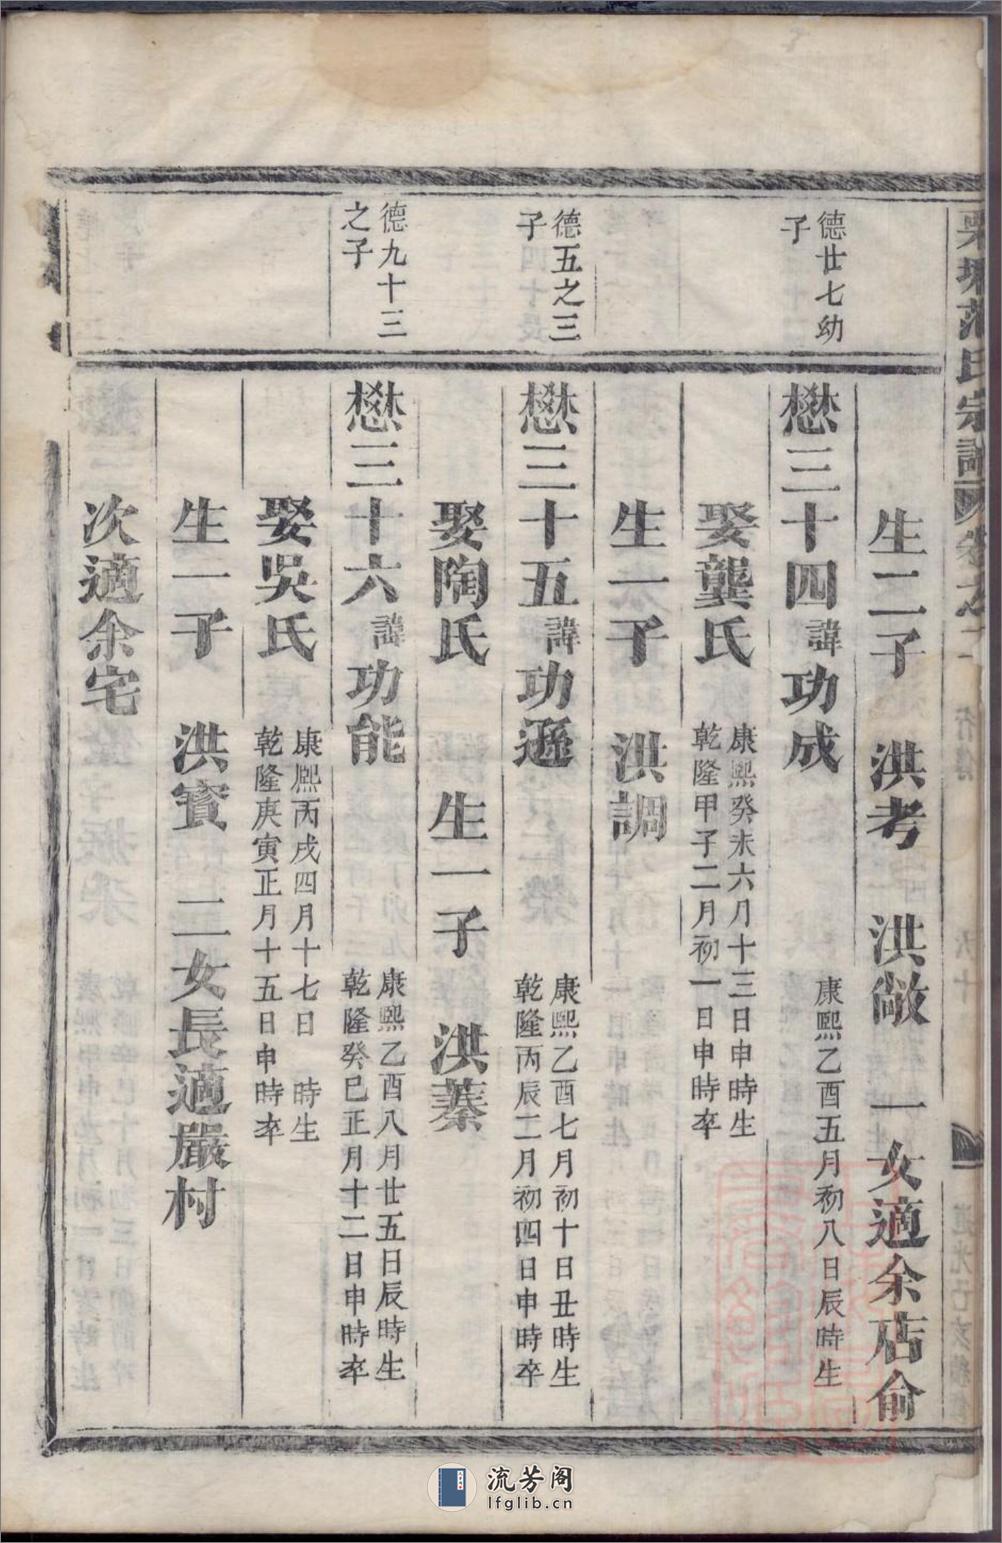 生二子 洪考 洪敞 一女適余店俞
德廿七幼
子
懋三十四諱功成
康熙乙酉五月初八日辰時生
娶龔氏
康熙癸未六月十三日申時生
乾隆甲子二月初一日申時卒
生一子 洪調
德五之三
子
懋三十五諱功遜
康熙乙酉七月初十日丑時生
乾隆丙辰二月初四日申時卒
娶陶氏 生一子 洪蓁
德九十三
之子
懋三十六諱功能
康熙乙酉八月廿五日辰時生
乾隆癸巳正月十二日申時卒
娶吳氏
康熙丙戌四月十七日 時生
乾隆庚寅正月十五日申時卒
生一子 洪賓 二女長適嚴村
次適余宅
流芳阁
lfglib.cn